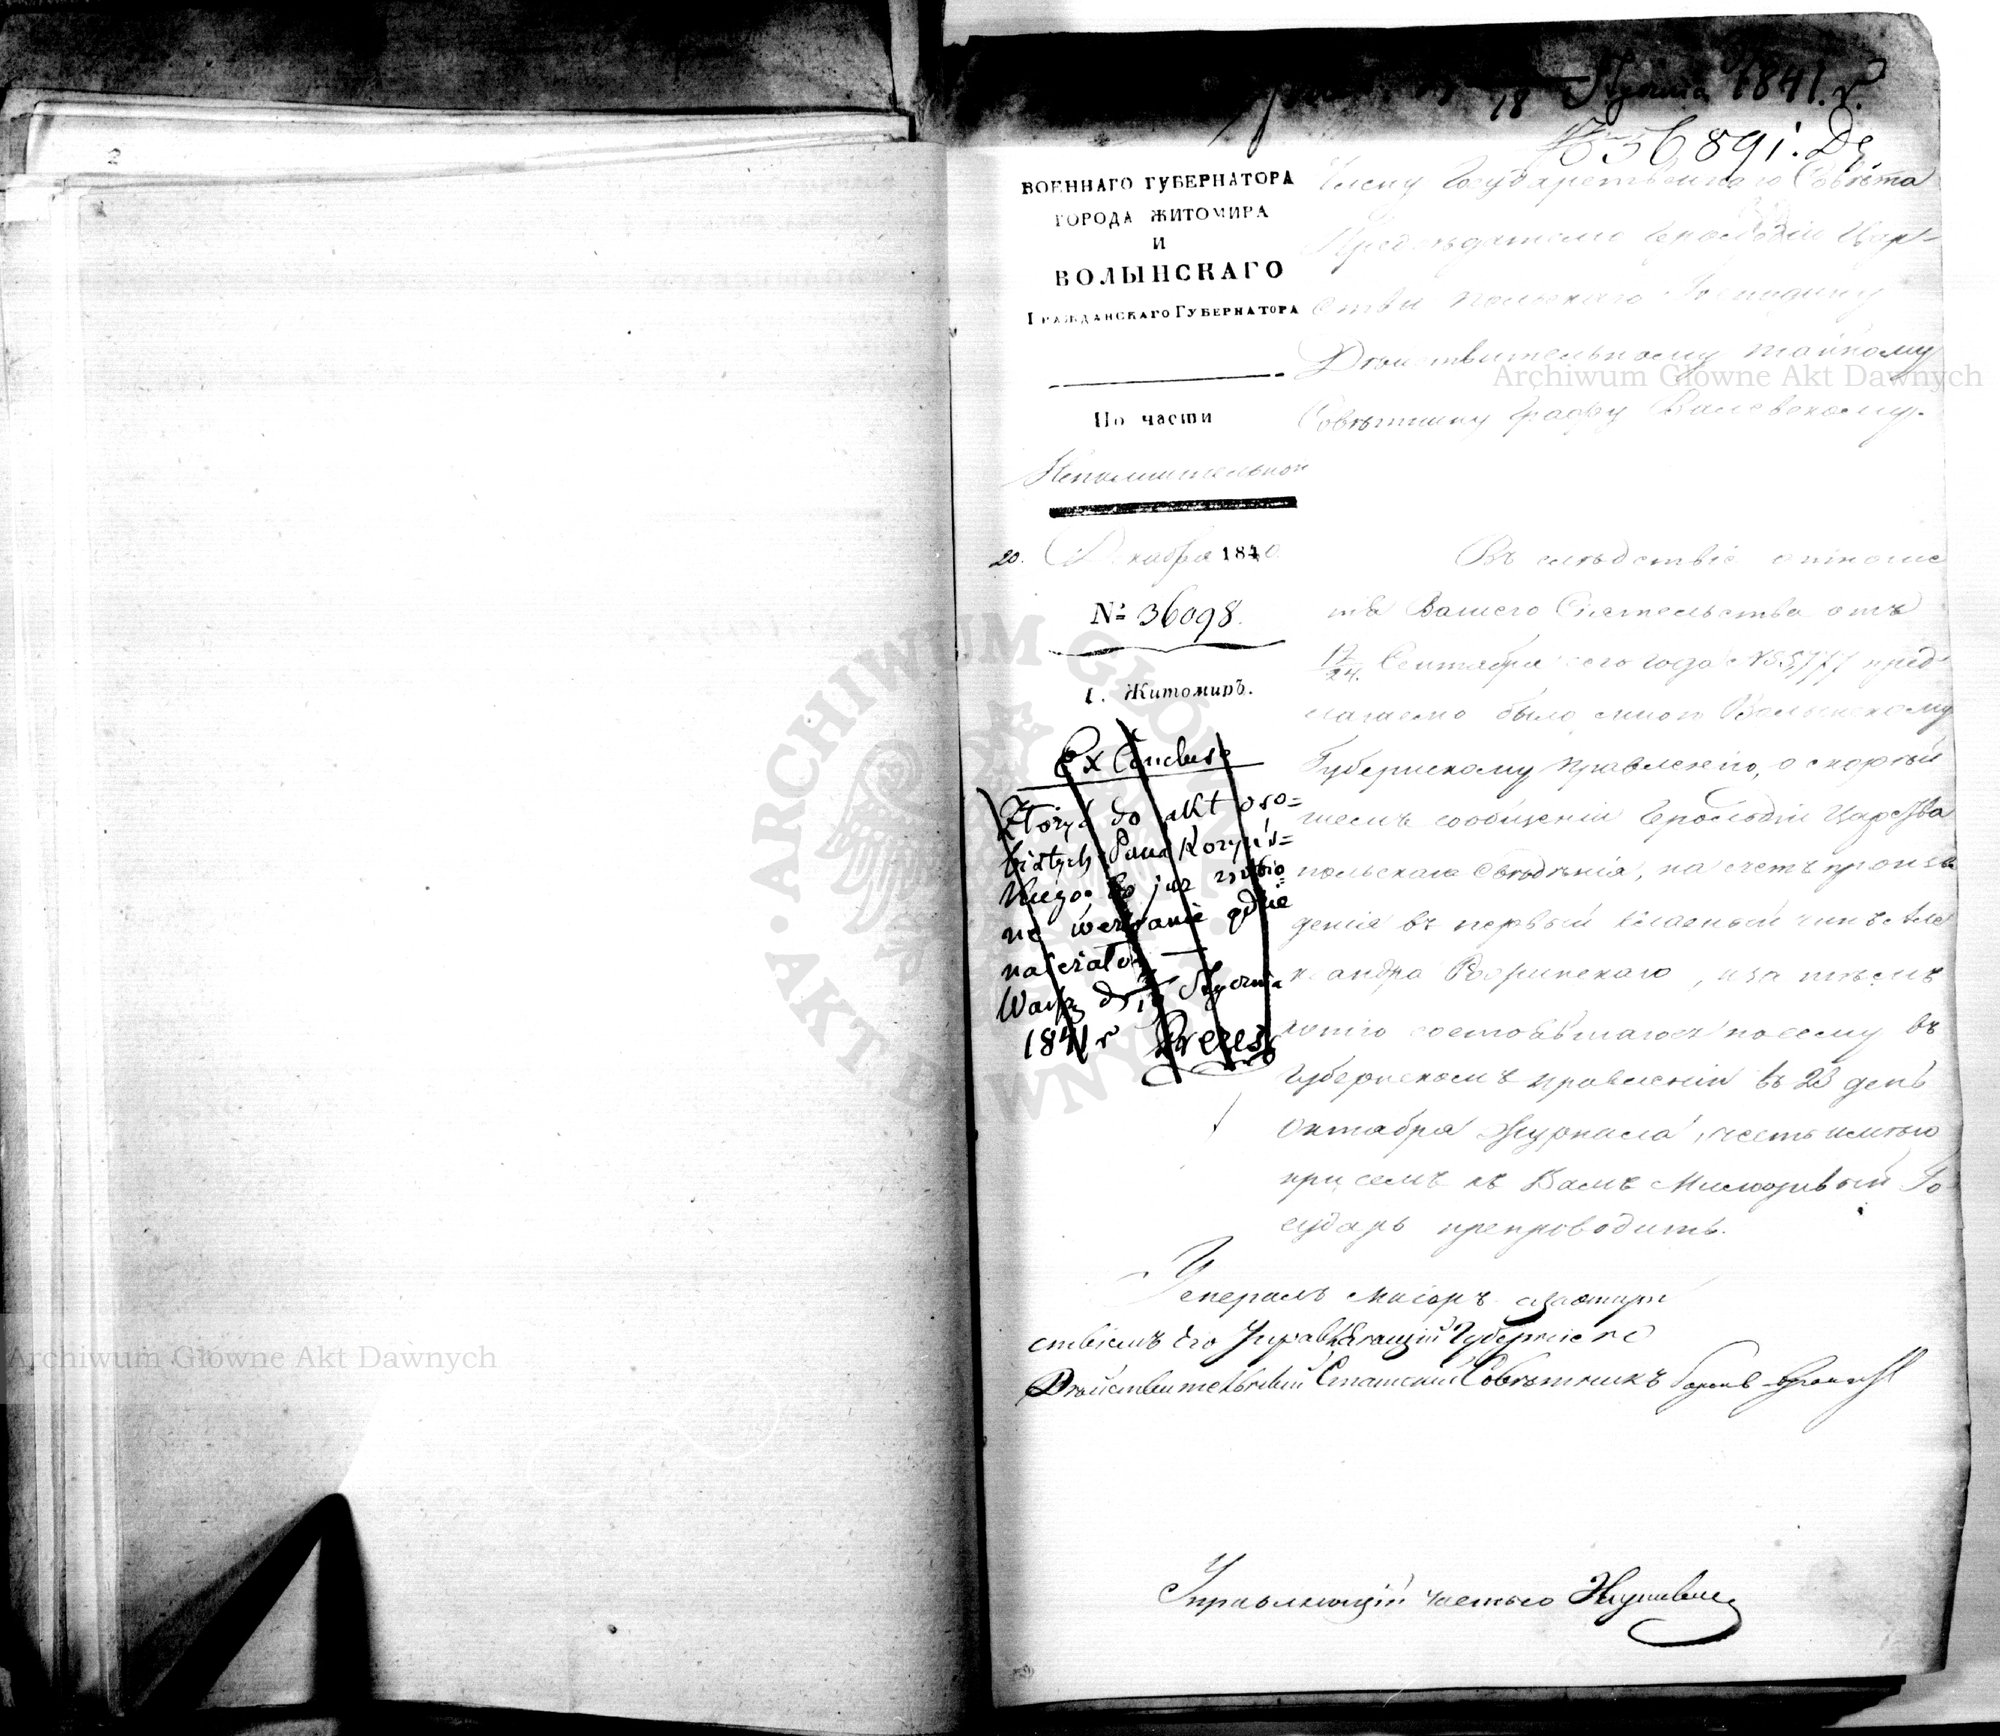 2
18 Stycznia 1841. r.
№ 36891. Dz
ВОЕННАГО ГУБЕРНАТОРА
ГОРОДА ЖИТОМИРА
И
ВОЛЫНСКАГО
ГРАЖДАНСКАГО ГУБЕРНАТОРА
По части
Исполнительной
20. Декабря 1840.
№ 36098.
Г. Житомиръ.
Члену Государственнаго Совѣта
Предсѣдателю Герольдіи Цар-
ства Польскаго Господину
Дѣйствительному тайному
Совѣтнику Графу Валевскому.
Въ слѣдствіе отноше
нія Вашего Сіятельства отъ
12/24. Сентября сего года № 5,777 пред-
лагаемо было мною Волынскому
Губернскому Правленію, о скорѣй
шемъ сообщеніи Герольдіи Царства
польскаго свѣдѣнія, на счетъ произве
денія въ первый классный чинъ Але
ксандра, и за тѣмъ
копію состоявшагося по сему въ
Губернскомъ Правленіи въ 23 день
Октября Журнала, честь имѣю
при семъ къ Вамъ Милостивый Го-
сударь препроводить.
Генералъ Маіоръ
Управляющій Губерніею
Дѣйствительный Статскій Совѣтникъ Баронъ
Управляющій частью
Ex Conclusi
Złożyć do akt oso=
bistych Pana
już zrobio=
ne wezwanie gdzie
należało
Warsz. d. Stycznia
1841 r Prezes
Archiwum Główne Akt Dawnych
Archiwum Główne Akt Dawnych
ARCHIWUM GŁÓWNE AKT DAWNYCH